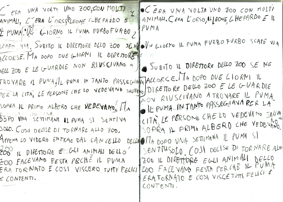 C'ERA UNA VOLTA UNO ZOO CON MOLTI
ANIMALI, C'ERA L'ORSO, LEONE, LEOPARDO E IL
PUMA. UN GIORNO IL PUMA FURBO FURBO
SUBITO IL DIRETTORE DELLO ZOO SE
ACCORSE. MA DOPO DUE GIORNI IL DIRETTORE
DELLO ZOO E LE GUARDIE NON RIUSCIVANO A
TROVARE IL PUMA. IL PUMA IN TANTO PASSEGGIAVA
PER LA CITTÀ, LE PERSONE CHE LO VEDEVANO
SOPRA IL PRIMO ALBERO CHE VEDEVANO. MA
DOPO UNA SETTIMANA IL PUMA SI SENTIVA
SOLO. COSÌ DECISE DI TORNARE ALLO ZOO.
LO VIDERO ENTRARE DAL CANCELLO DELLO
ZOO IL DIRETTORE E GLI ANIMALI DELLO
ZOO FACEVANO FESTA PERCHÉ IL PUMA
ERA TORNATO E COSÌ VISSERO TUTTI FELICI
E CONTENTI.
C'ERA UNA VOLTA UNO ZOO CON MOLTI
ANIMALI, C'ERA L'ORSO, LEONE, LEOPARDO E IL
PUMA
UN GIORNO IL PUMA FURBO FURBO SCAPPÒ VIA
SUBITO IL DIRETTORE DELLO ZOO SE NE
ACCORSE. MA DOPO DUE GIORNI IL
DIRETTORE DELLO ZOO E LE GUARDIE
NON RIUSCIVANO A TROVARE IL PUMA
IL PUMA IN TANTO PASSEGGIAVA PER LA
CITTÀ, LE PERSONE CHE LO VEDEVANO
SOPRA IL PRIMO ALBERO CHE VEDEVANO
MA DOPO UNA SETTIMANA IL PUMA SI
SENTIVA SOLO. COSÌ DECISE DI TORNARE ALLO
ZOO IL DIRETTORE E GLI ANIMALI DELLO
ZOO FACEVANO FESTA PERCHÉ IL PUMA
ERA TORNATO E COSÌ VISSERO TUTTI FELICI E
CONTENTI.